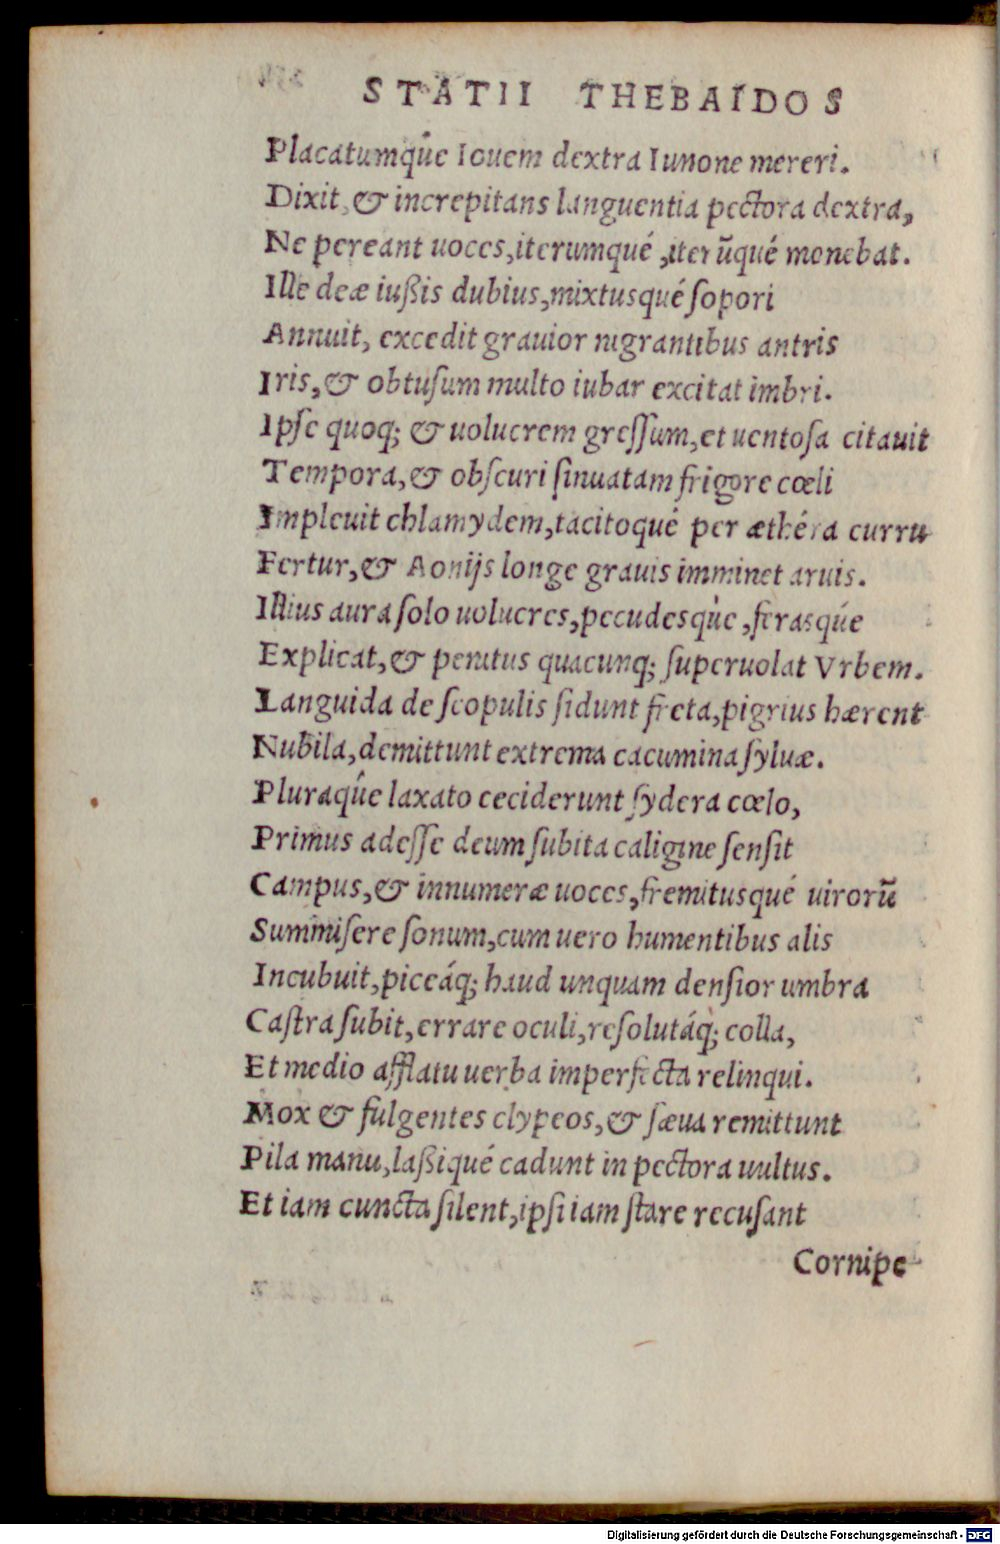 STATII THEBAIDOS
Placatumqûe Iouem dextra Iunone mereri.
Dixit, & increpitans languentia pectora dextra,
Ne pereant uoces, iterumqué, iterũqué monebat.
Ille deæ iußis dubius, mixtusqué ſopori
Annuit, excedit grauior nigrantibus antris
Iris, & obtuſum multo iubar excitat imbri.
Ipſe quoq; & uolucrem greſſum, et uentoſa citauit
Tempora, & obſcuri ſinuatam frigore cœli
Impleuit chlamydem, tacitoqué per æthéra curru
Fertur, & Aonijs longe grauis imminet aruis.
Illius aura ſolo uolucres, pecudesqùe, ferasqúe
Explicat, & penitus quacunq; ſuperuolat Vrbem.
Languida de ſcopulis ſidunt freta, pigrius hærent
Nubila, demittunt extrema cacumina ſyluæ.
Pluraqûe laxato ceciderunt ſydera cœlo,
Primus adeſſe deum ſubita caligine ſenſit
Campus, & innumeræ uoces, fremitusqué uirorũ
Summiſere ſonum, cum uero humentibus alis
Incubuit, piceáq; haud unquam denſior umbra
Caſtra ſubit, errare oculi, reſolutáq; colla,
Et medio afflatu uerba imperfecta relinqui.
Mox & fulgentes clypeos, & ſæua remittunt
Pila manu, laßiqué cadunt in pectora uultus.
Et iam cuncta ſilent, ipſi iam ſtare recuſant
Cornipe
Digitalisierung gefördert durch die Deutsche Forschungsgemeinschaft - DFG